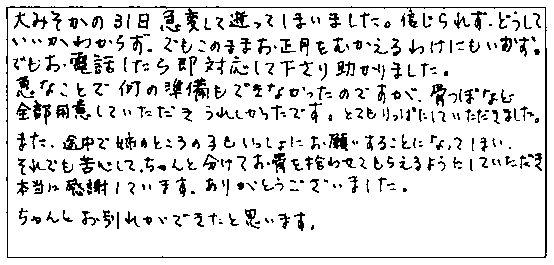 大みそかの31日急変して逝ってしまいました。信じられず、どうして
いいかわからず。でもこのままお正月をむかえるわけにもいかず。
でもお電話したら即対応して下さり助かりました。
急なことで何の準備もできなかったのですが、骨つぼなど
全部用意していただきうれしかったです。とてもりっぱにしていただきました。
また、途中で姉のところの子もいっしょにお願いすることになってしまい、
それでも苦心して、ちゃんと分けてお骨を拾わせてもらえるようにしていただき
本当に感謝しています。ありがとうございました。
ちゃんとお別れができたと思います。